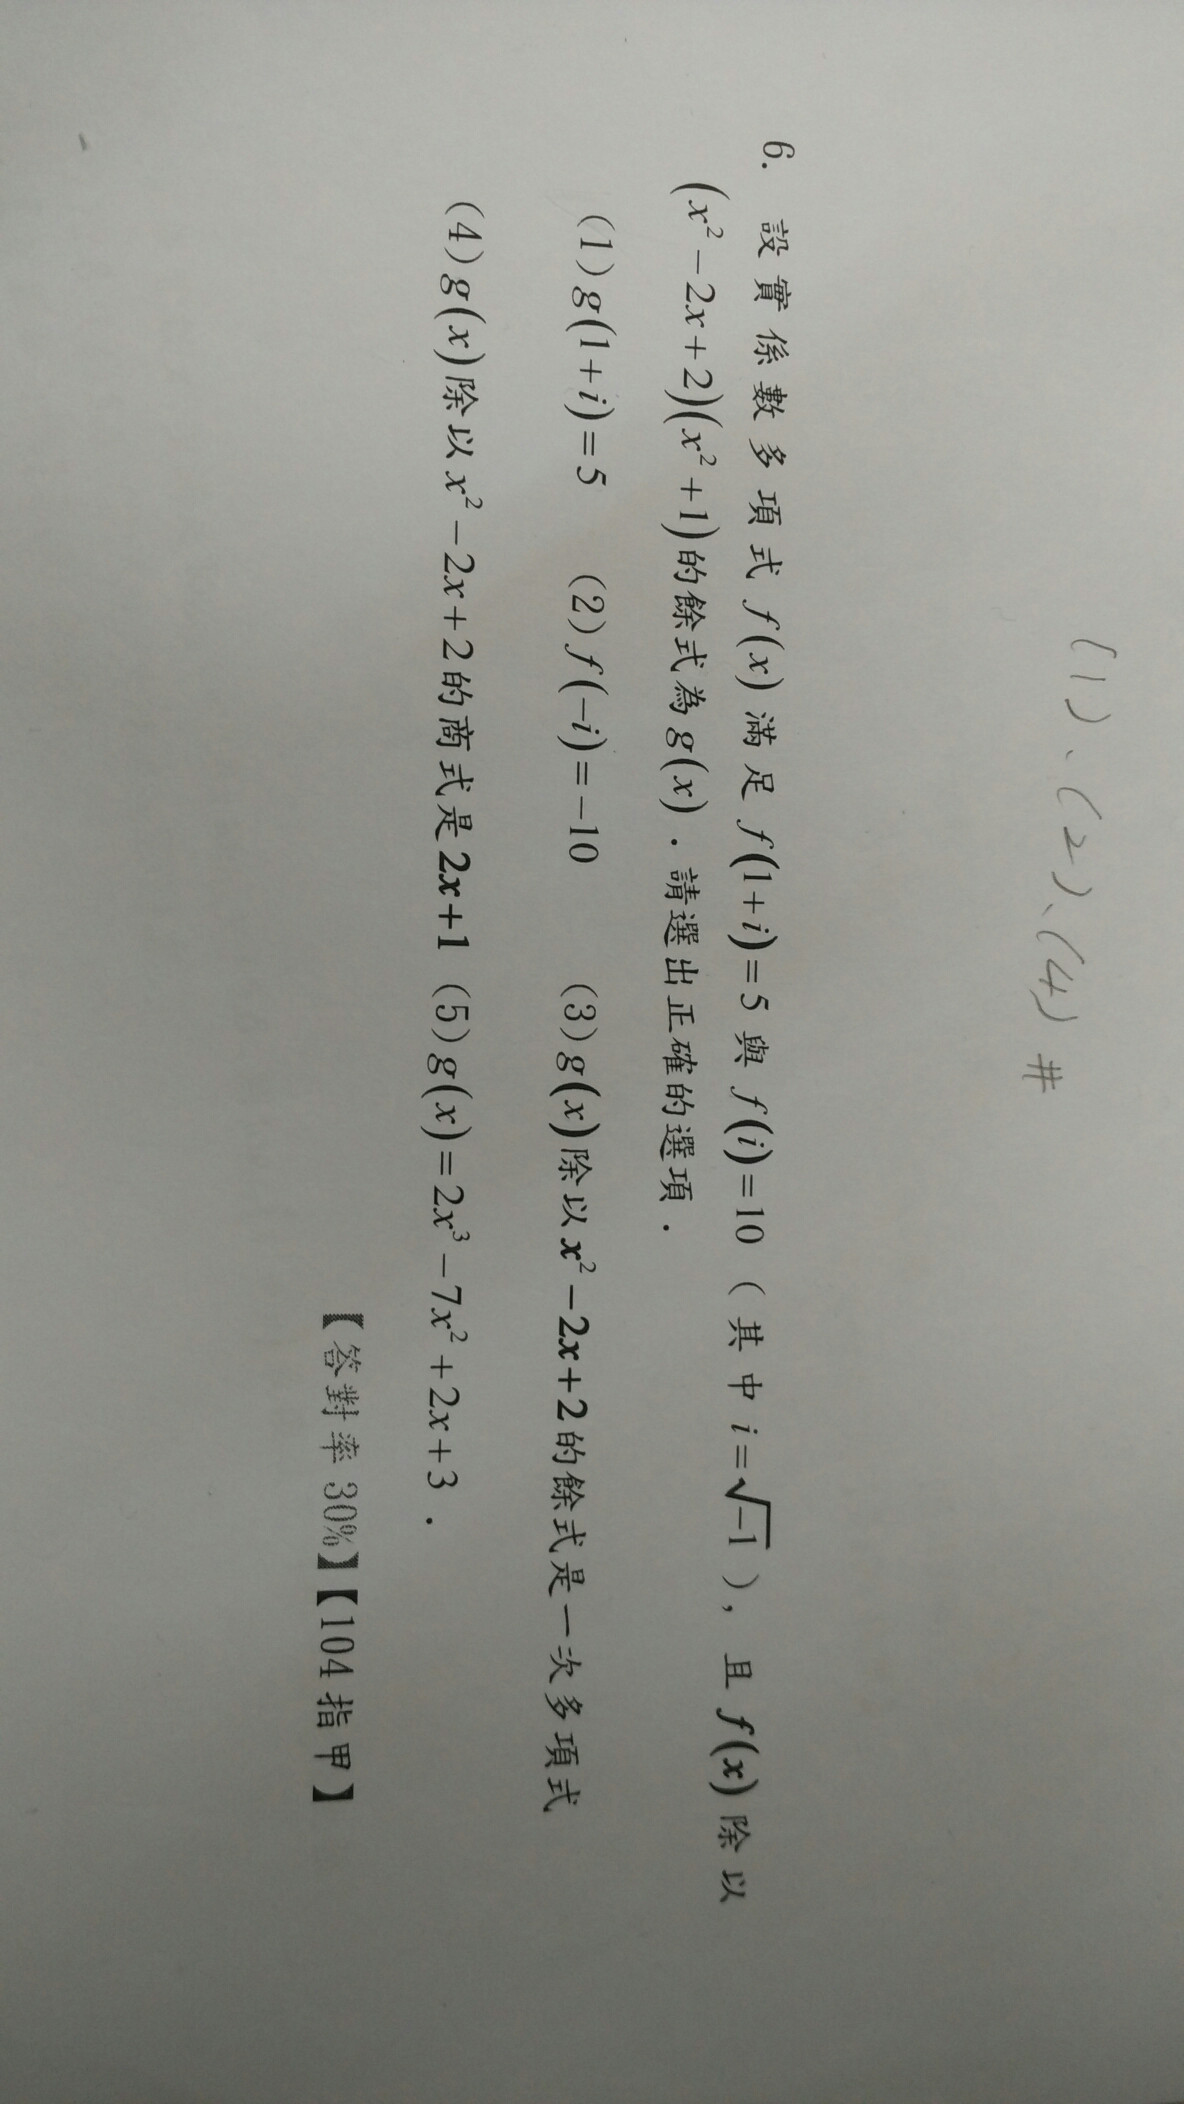 (1)、(2)、(4) #
6. 設實係數多項式 f(x) 滿足 f(1+i)=5 與 f(i)=10（其中 i=√-1），且 f(x) 除以
(x²-2x+2)(x²+1)的餘式為 g(x)．請選出正確的選項．
(1)g(1+i)=5 (2)f(-i)=-10 (3)g(x)除以x²-2x+2的餘式是一次多項式
(4)g(x)除以x²-2x+2的商式是2x+1 (5)g(x)=2x³-7x²+2x+3．
【答對率 30%】【104 指甲】